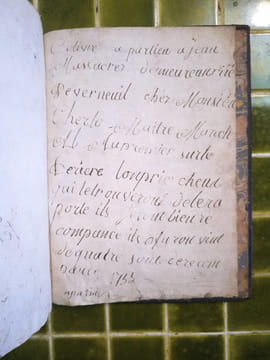 Ce livre a partien a jean
Massacrer demeurans rüe
De verneuil chez Monsieur
Cherlo Maitre March
Au premier sur le
Deriere lon prie cheux
qui le trouveront de le ra
porte ils feront bien re
compancé ils auront vint
de quatre sout de recom
pance 1733
a paris